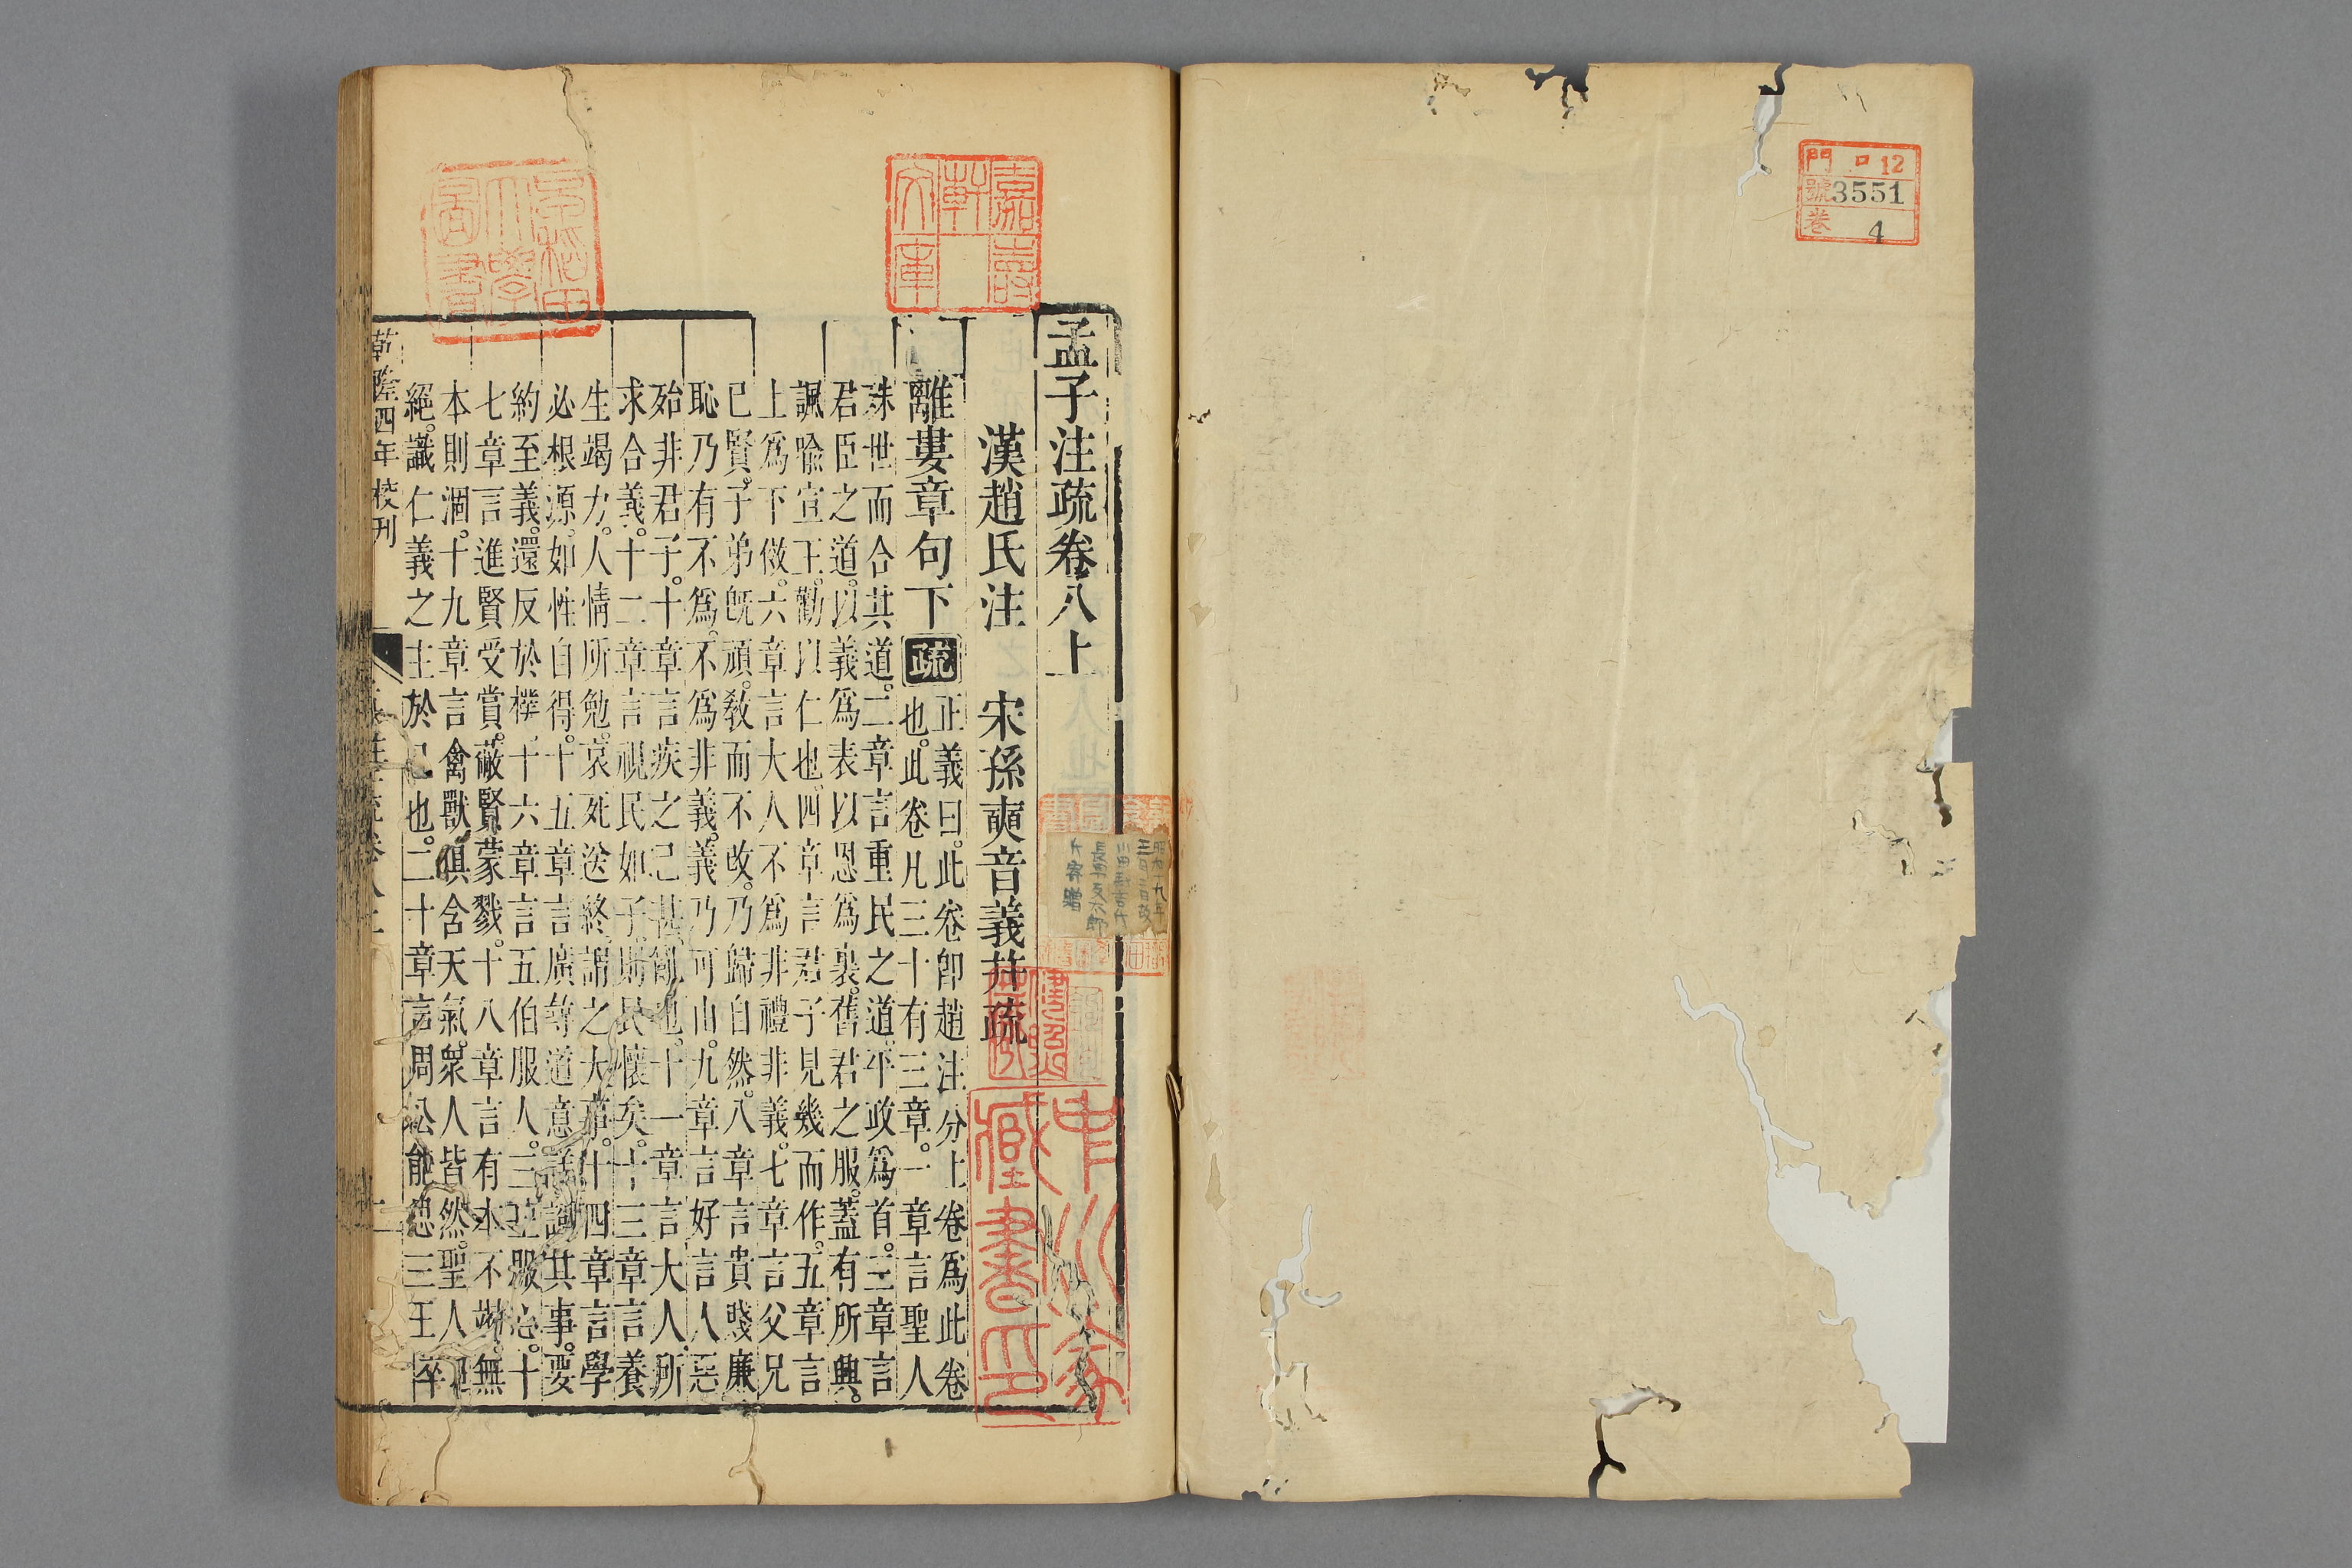 門 口 12
號 3551
卷 4
嘉壽軒文庫
早稻田大學圖書
孟子注疏卷八上
漢趙氏注 宋孫奭音義并疏
離婁章句下
疏
正義曰此卷卽趙注分上卷爲此卷
也。此卷凡三十有三章。一章言聖人
殊世而合其道。二章言重民之道。平政爲首。三章言
君臣之道。以義爲表以恩爲裏。舊君之服。蓋有所興。
諷喩宣王。勸以仁也。四章言君子見幾而作。五章言
上爲下傚。六章言大人不爲非禮非義。七章言父兄
已賢。子弟旣頑。敎而不改。乃歸自然。八章言貴賤廉
恥乃有不爲。不爲非義。義乃可由。九章言好言人惡
殆非君子。十章言疾之已甚。亂也。十一章言大人所
求合義。十二章言視民如子。則民懷矣。十三章言養
生竭力。人情所勉。哀死送終。謂之大事。十四章言學
必根源。如性自得。十五章言廣尋道意。詳說其事。要
約至義。還反於樸。十六章言五伯服人。三王服心。十
七章言進賢受賞。蔽賢蒙戮。十八章言有本不竭。無
本則涸。十九章言禽獸俱含天氣。衆人皆然。聖人
絕。識仁義之主於己也。二十章言周公能思三王
乾隆四年校刊
孟子注疏卷八上
甲山家藏書印